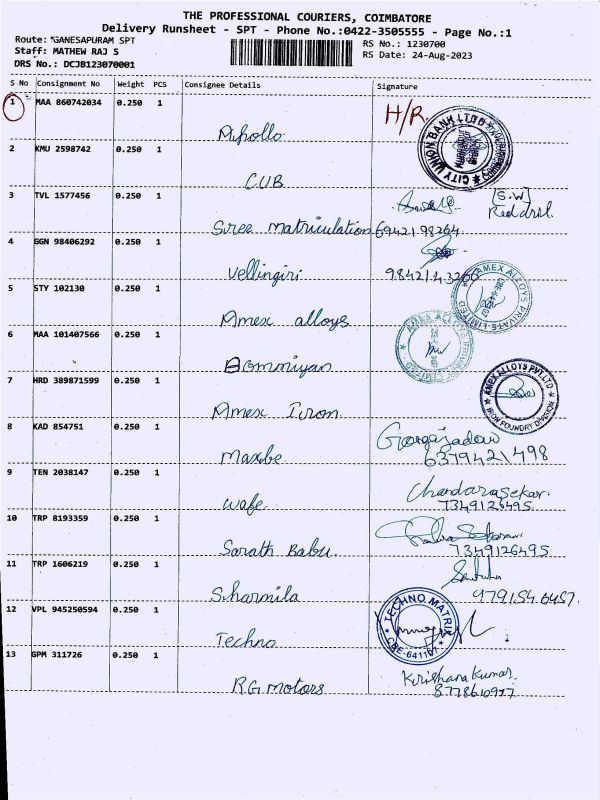 THE PROFESSIONAL COURIERS, COIMBATORE
Delivery Runsheet - SPT - Phone No.:0422-3505555 - Page No.:1
Route: GANESAPURAM SPT
RS No.: 1230700
Staff: MATHEW RAJ S
RS Date: 24-Aug-2023
DRS No.: DCJB123070001
S No Consignment No Weight PCS Consignee Details Signature
1 MAA 860742034 0.250 1 H/R
Apollo
CITY UNION BANK LTD
2 KMU 2598742 0.250 1
CUB
3 TVL 1577456 0.250 1 [S.W]
Sree matriculation 69421 98264
4 GGN 98406292 0.250 1
Vellingiri
5 STY 102130 0.250 1
Amex alloys
AMEX ALLOYS PRIVATE LIMITED
6 MAA 101407566 0.250 1
Bommiyan
7 HRD 389871599 0.250 1
Amex Iron
AMEX ALLOYS PVT LTD IRON FOUNDRY DIVISION
8 KAD 854751 0.250 1
Maxbe 6379421498
9 TEN 2038147 0.250 1 Chandarasekar
wafe 7349126495
10 TRP 8193359 0.250 1
Sarath Babu 7349126495
11 TRP 1606219 0.250 1
Sharmila 979154 6457
12 VPL 945250594 0.250 1
Techno
TECHNO MATRIX CBE-641107
13 GPM 311726 0.250 1 Krishana Kumar
RG motors 8778610977